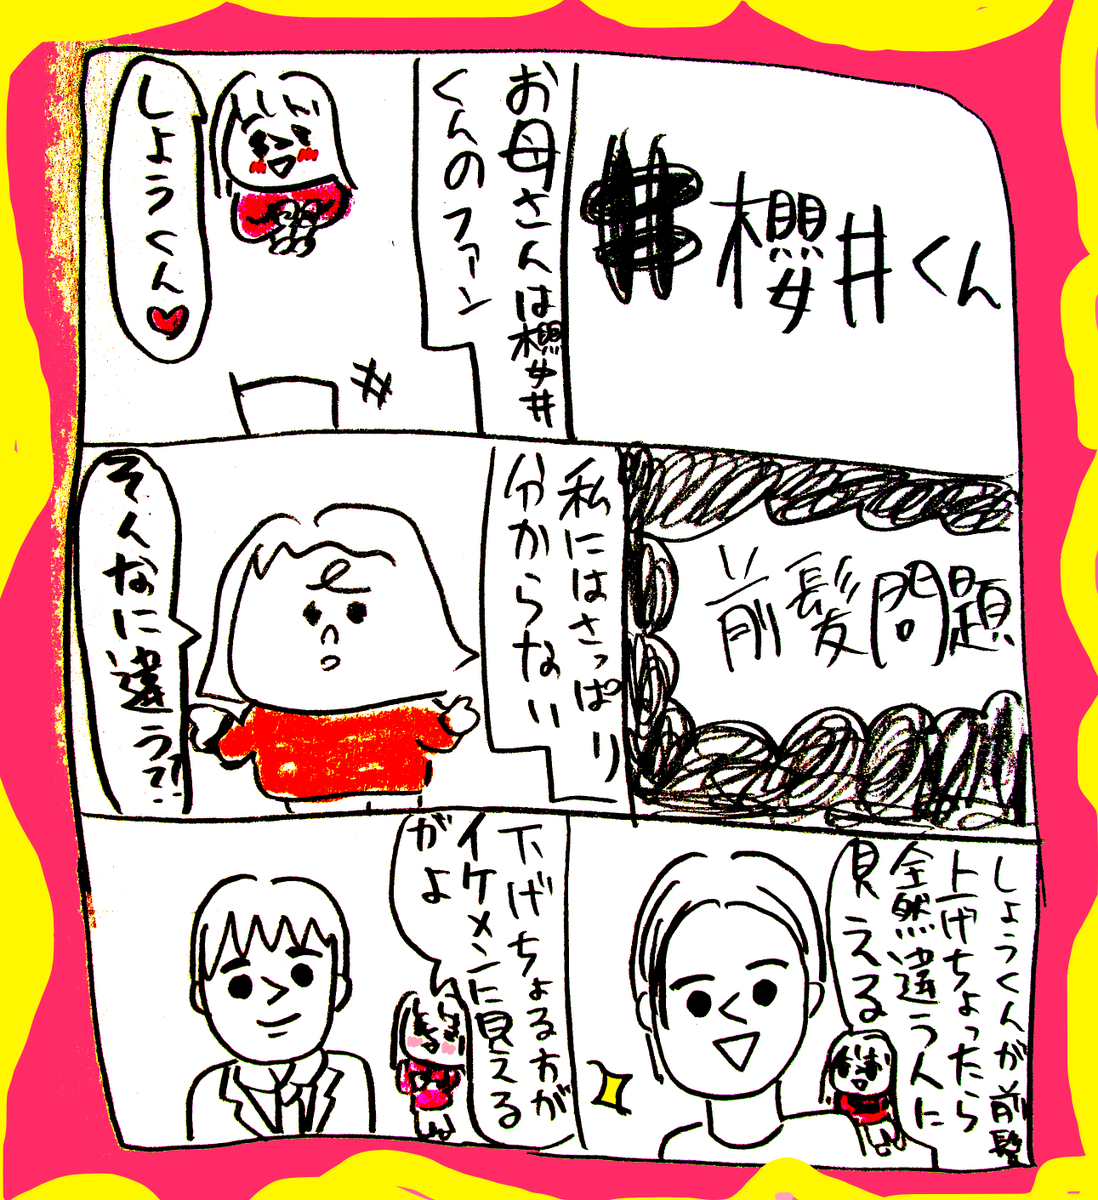 櫻井くん
お母さんは櫻井
くんのファン
しょうくん♥
前髪問題
私にはさっぱり
分からない
そんなに違う?!
しょうくんが前髪
上げちょったら
全然違う人に
見える
下げちょる方が
イケメンに見える
がよ